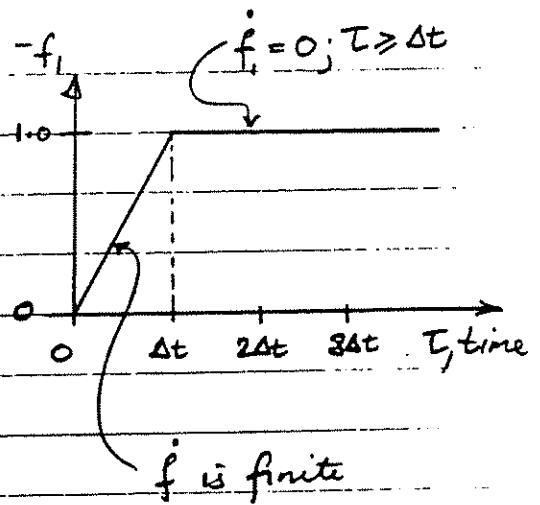 -f₁
ḟ₁ = 0; τ ≥ Δt
1.0
0
0 Δt 2Δt 3Δt τ, time
ḟ is finite